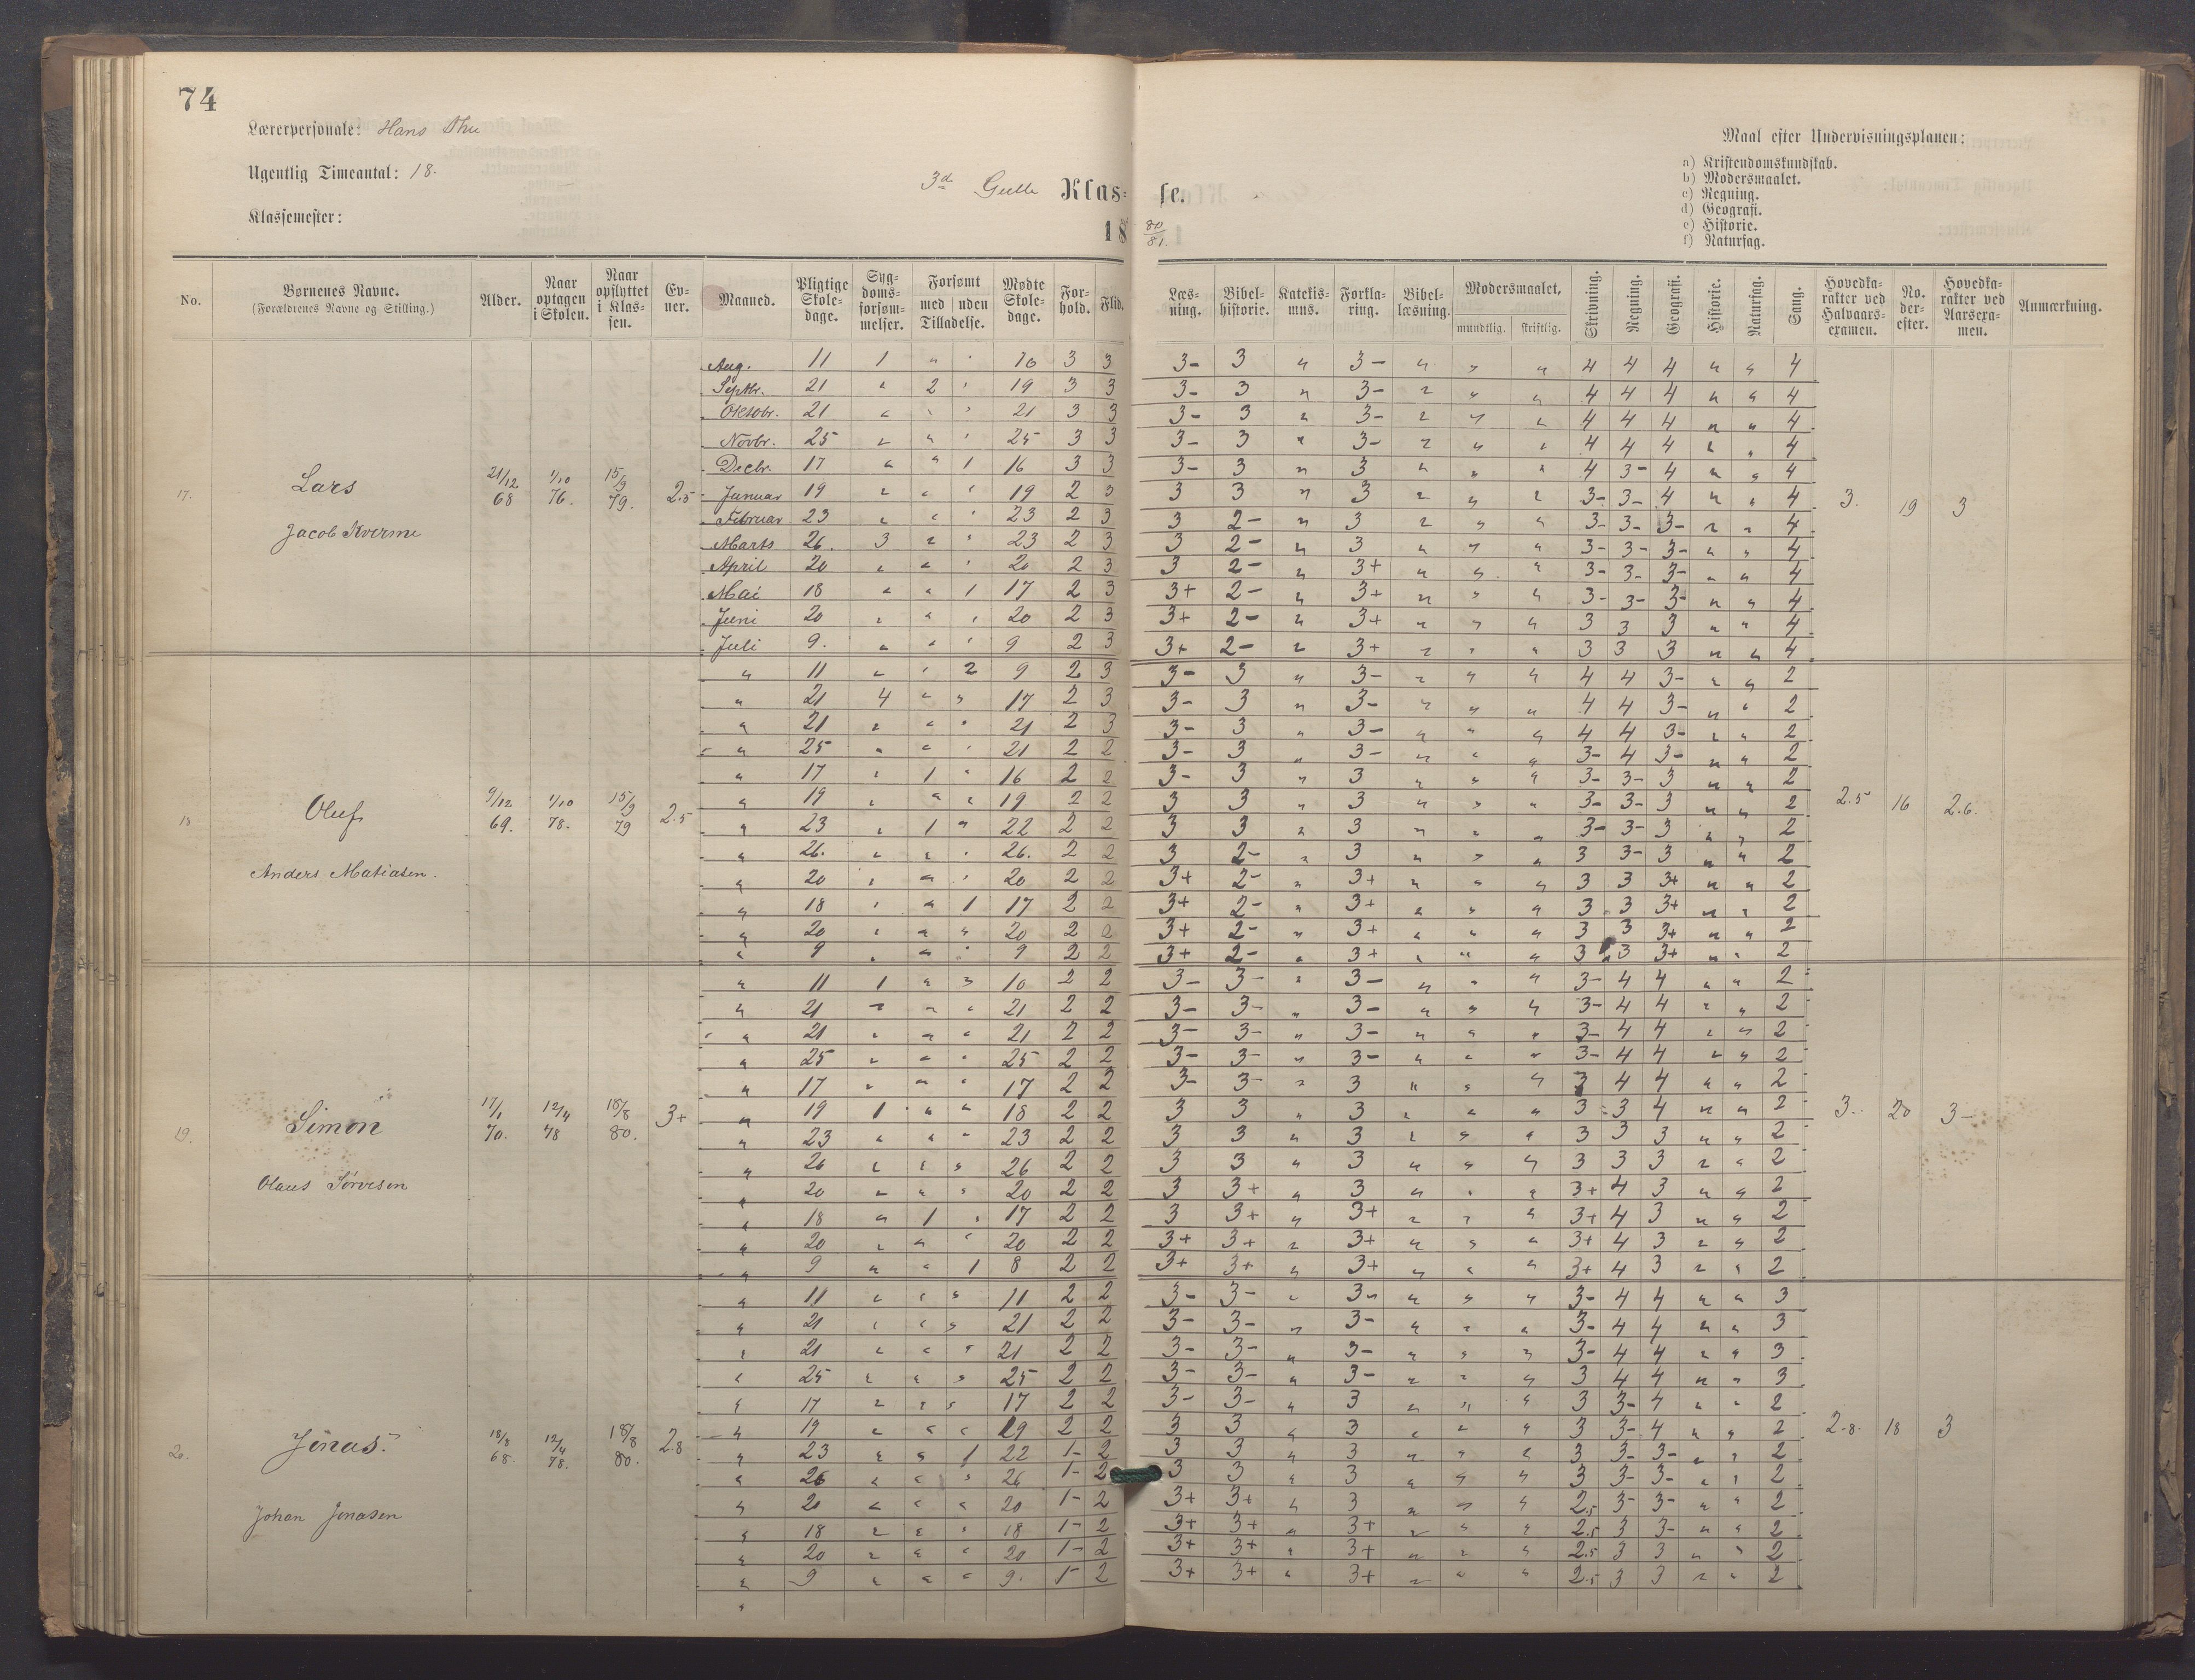 74
Lærerpersonale: Hans Thu
Ugentlig Timeantal: 18.
Klassemester:
3d Gutte Klas= se.
18 80/81.
Maal efter Undervisningsplanen:
a) Kristendomskundskab.
b) Modersmaalet.
c) Regning.
d) Geografi.
e) Historie.
f) Naturfag.
No. Børnenes Navne. (Forældrenes Navne og Stilling.) Alder. Naar optagen i Skolen. Naar opflyttet i Klassen. Evner. Maaned. Pligtige Skoledage. Sygdomsforsømmelser. Forsømt med uden Tilladelse. Mødte Skoledage. Forhold. Flid. Læsning. Bibelhistorie. Katekismus. Forklaring. Bibellæsning. Modersmaalet, mundtlig. skriftlig. Skrivning. Regning. Geografi. Historie. Naturfag. Sang. Hovedkarakter ved Halvaarsexamen. No. derefter. Hovedkarakter ved Aarsexamen. Anmærkning.
17. Lars Jacob Kverme 21/12 68 1/10 76. 15/9 79. 2.5 3. 19 3
Aug. 11 1 " " 10 3 3 3- 3 " 3- " " " 4 4 4 " " 4
Septbr. 21 " 2 " 19 3 3 3- 3 " 3- " " " 4 4 4 " " 4
Oktobr. 21 " " " 21 3 3 3- 3 " 3- " " " 4 4 4 " " 4
Novbr. 25 " " " 25 3 3 3- 3 " 3- " " " 4 4 4 " " 4
Decbr. 17 " " 1 16 3 3 3- 3 " 3 " " " 4 3- 4 " " 4
Januar 19 " " " 19 2 3 3 3 " 3 " " " 3- 3- 4 " " 4
Februar 23 " " " 23 2 3 3 2- " 3 " " " 3- 3- 3- " " 4
Marts 26. 3 " " 23 2 3 3 2- " 3 " " " 3- 3- 3- " " 4
April 20 " " " 20 2 3 3 2- " 3+ " " " 3- 3- 3- " " 4
Mai 18 " " 1 17 2 3 3+ 2- " 3+ " " " 3- 3- 3- " " 4
Juni 20 " " " 20 2 3 3+ 2- " 3+ " " " 3 3 3 " " 4
Juli 9. " " " 9 2 3 3+ 2- " 3+ " " " 3 3 3 " " 4
18 Oluf Anders Matiasen. 9/12 69. 1/10 78. 15/9 79 2.5 2.5 16 2.6.
" 11 " " 2 9 2 3 3- 3 " 3- " " " 4 4 3- " " 2
" 21 4 " " 17 2 3 3- 3 " 3- " " " 4 4 3- " " 2
" 21 " " " 21 2 3 3- 3 " 3- " " " 4 4 3- " " 2
" 25 " " " 21 2 2 3- 3 " 3- " " " 3- 4 3- " " 2
" 17 " 1 " 16 2 2 3- 3 " 3 " " " 3- 3- 3 " " 2
" 19 " " " 19 2 2 3 3 " 3 " " " 3- 3- 3 " " 2
" 23 " 1 " 22 2 2 3 3 " 3 " " " 3- 3- 3 " " 2
" 26. " " " 26. 2 2 3 2- " 3 " " " 3 3- 3 " " 2
" 20 " " " 20 2 2 3+ 2- " 3+ " " " 3 3 3+ " " 2
" 18 " " 1 17 2 2 3+ 2- " 3+ " " " 3 3 3+ " " 2
" 20 " " " 20 2 2 3+ 2- " 3+ " " " 3 3 3+ " " 2
" 9 " " " 9 2 2 3+ 2- " 3+ " " " 3 3 3+ " " 2
19. Simon Olaus Sørvesen 17/1 70. 12/4 78 18/8 80. 3+ 3. 20 3-
" 11 1 " " 10 2 2 3- 3- " 3- " " " 3- 4 4 " " 2
" 21 " " " 21 2 2 3- 3- " 3- " " " 3- 4 4 " " 2
" 21 " " " 21 2 2 3- 3- " 3- " " " 3- 4 4 " " 2
" 25 " " " 25 2 2 3- 3- " 3- " " " 3- 4 4 " " 2
" 17 " " " 17 2 2 3- 3- " 3 " " " 3 4 4 " " 2
" 19 1 " " 18 2 2 3 3 " 3 " " " 3 3 4 " " 2
" 23 " " " 23 2 2 3 3 " 3 " " " 3 3 3 " " 2
" 26 " " " 26 2 2 3 3 " 3 " " " 3 3 3 " " 2
" 20 " " " 20 2 2 3 3+ " 3 " " " 3+ 4 3 " " 2
" 18 " 1 " 17 2 2 3 3+ " 3+ " " " 3+ 4 3 " " 2
" 20 " " " 20 2 2 3+ 3+ " 3+ " " " 3+ 4 3 " " 2
" 9 " " 1 8 2 2 3+ 3+ " 3+ " " " 3+ 4 3 " " 2
20. Jonas. Johan Jonasen 18/8 68. 12/4 78. 18/8 80. 2.8 2.8. 18 3
" 11 " " " 11 2 2 3- 3- " 3- " " " 3- 4 4 " " 3
" 21 " " " 21 2 2 3- 3- " 3- " " " 3- 4 4 " " 3
" 21 " " " 21 2 2 3- 3- " 3- " " " 3- 4 4 " " 3
" 25 " " " 25 2 2 3- 3- " 3- " " " 3 4 4 " " 3
" 17 " " " 17 2 2 3- 3- " 3 " " " 3 3- 4 " " 2
" 19 " " " 19 2 2 3 3 " 3 " " " 3 3- 4 " " 2
" 23 " " 1 22 1- 2 3 3 " 3 " " " 3 3- 3- " " 2
" 26 " " " 26 1- 2 3 3 " 3 " " " 3 3- 3- " " 2
" 20 " " " 20 1- 2 3+ 3+ " 3 " " " 2.5 3- 3- " " 2
" 18 " " " 18 1- 2 3+ 3+ " 3+ " " " 2.5 3 3- " " 2
" 20 " " " 20 1- 2 3+ 3+ " 3+ " " " 2.5 3 3 " " 2
" 9 " " " 9. 1- 2 3+ 3+ " 3+ " " " 2.5 3 3 " " 2
"